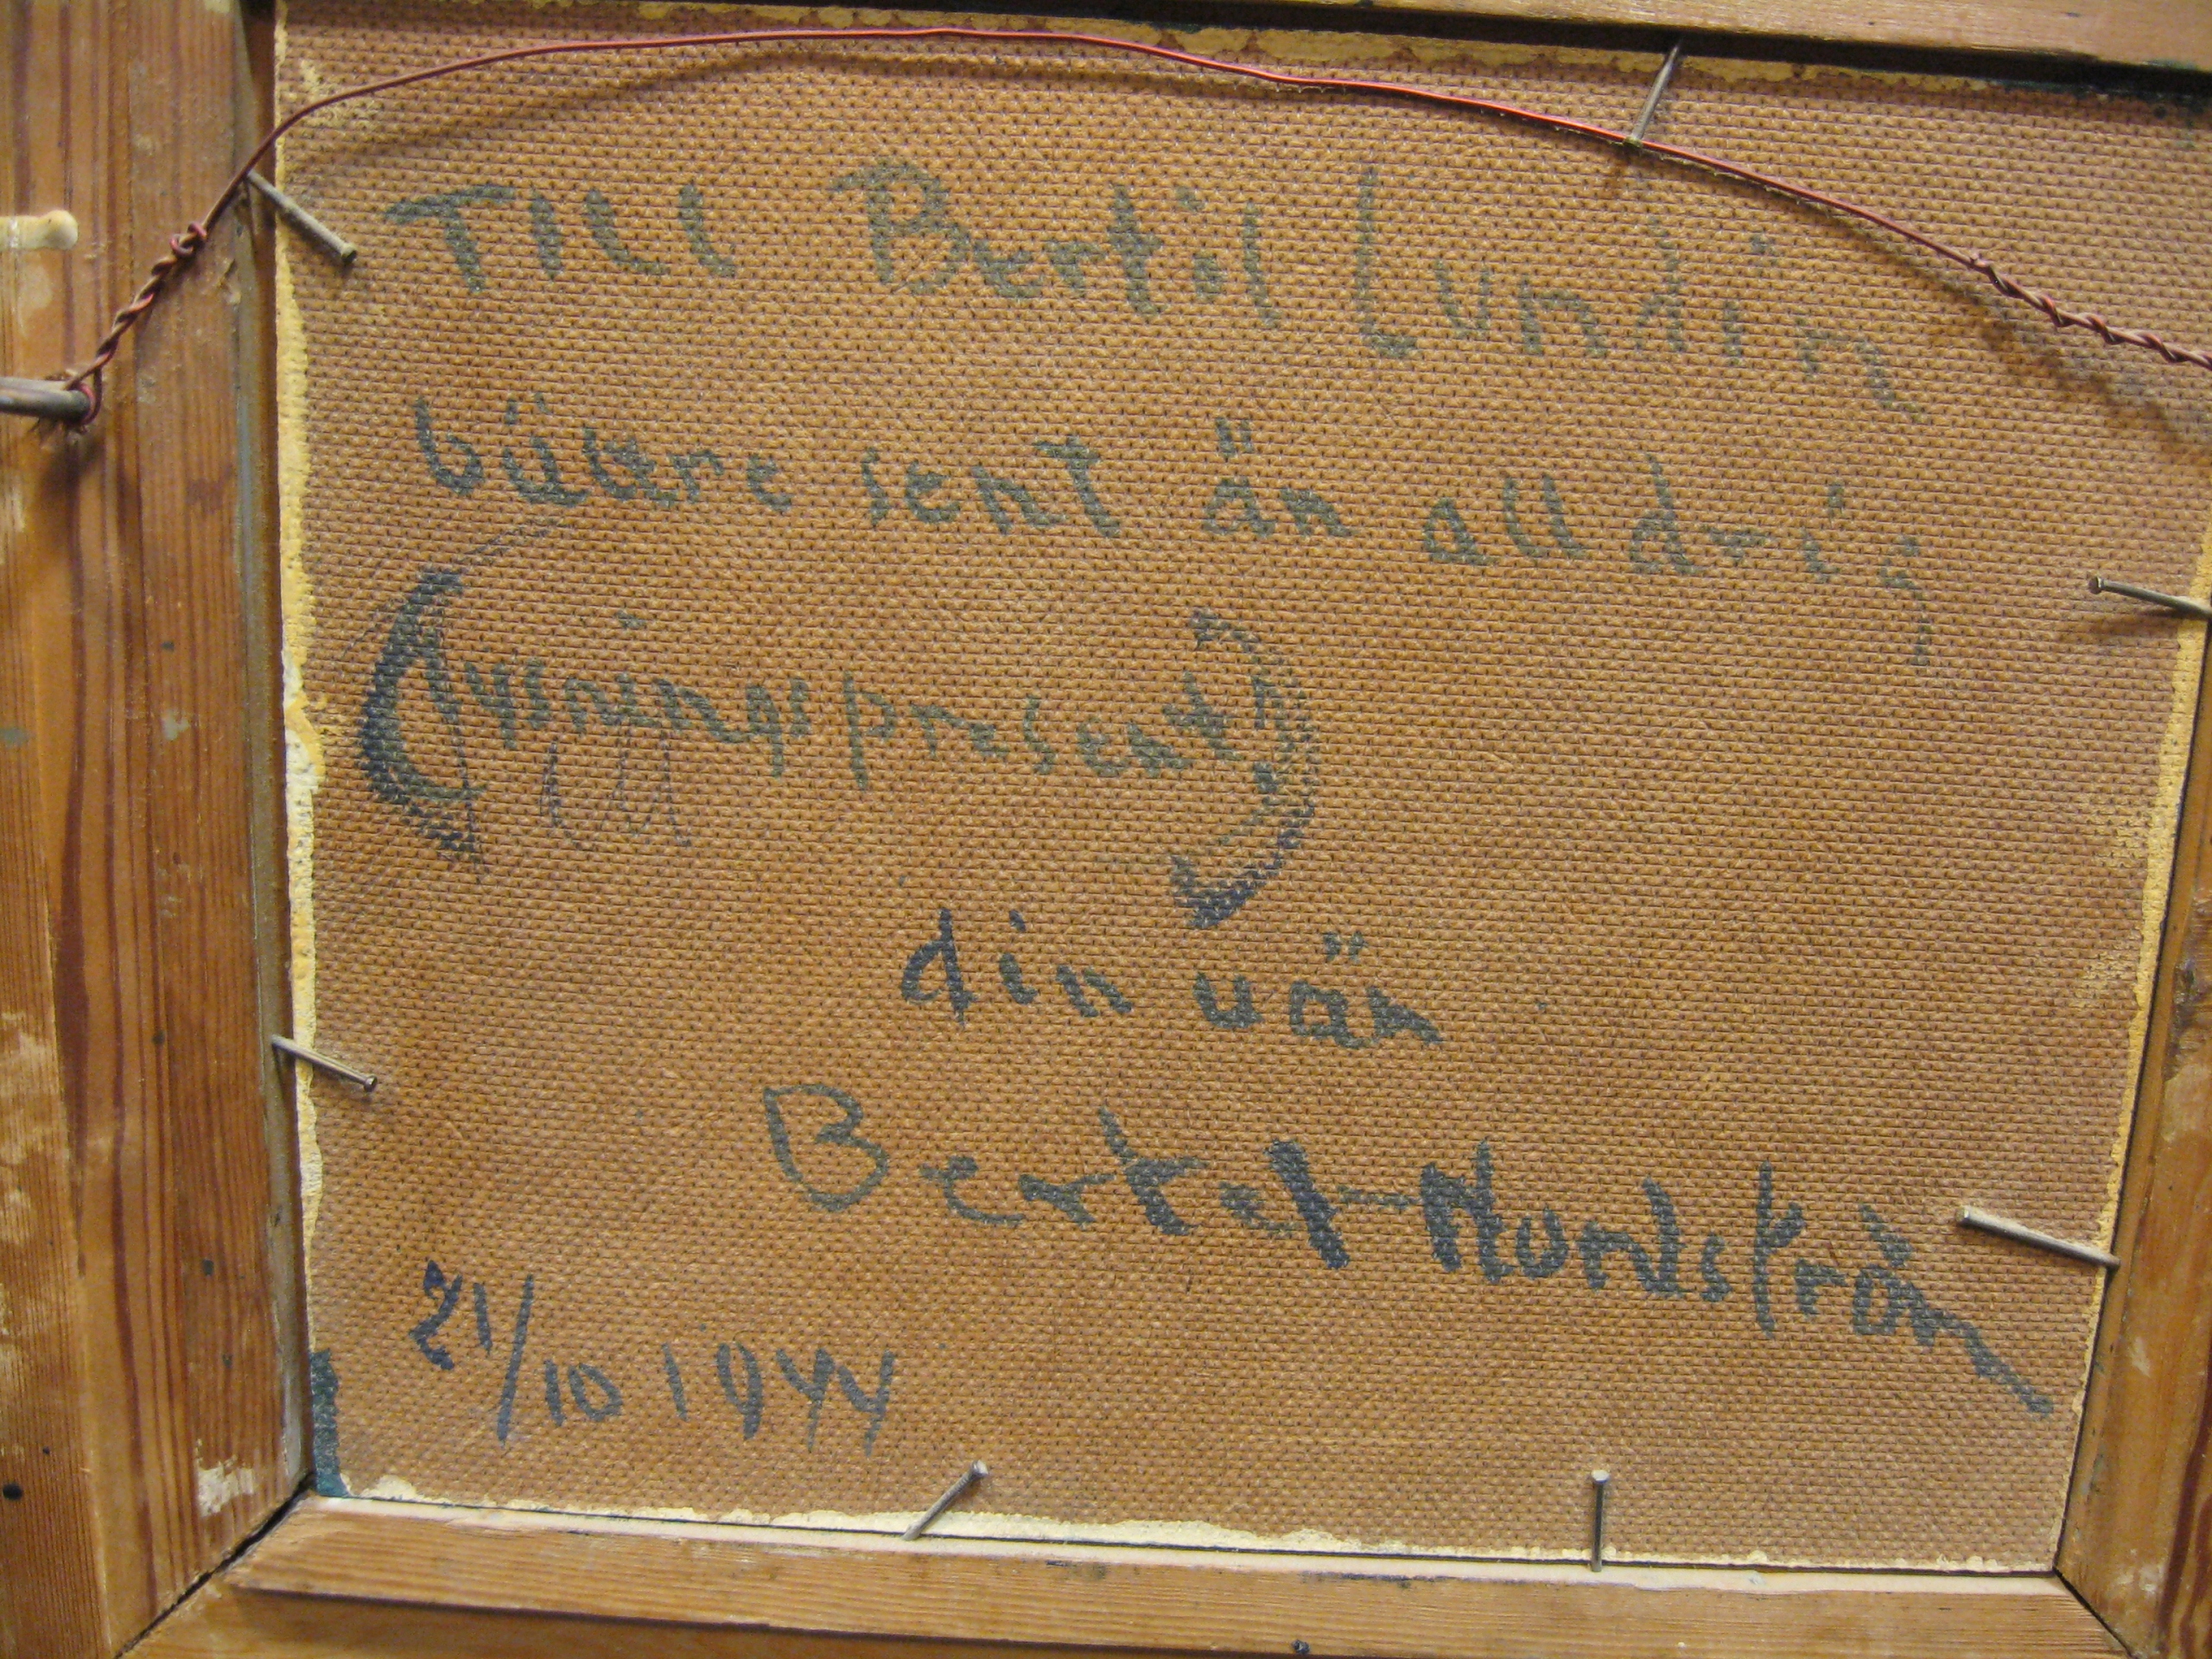 Till Bertil Lundin
bättre sent än alldrig
(lysningspresent)
din vän
Bertel-Nordström
21/10 1944